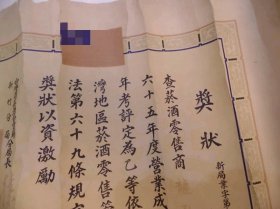 獎狀
新局業字第
查菸酒零售商
六十五年度營業成
年考評定為乙等依
灣地區菸酒零售
法第六十九條規
獎狀以資激勵
新竹分
局分局長